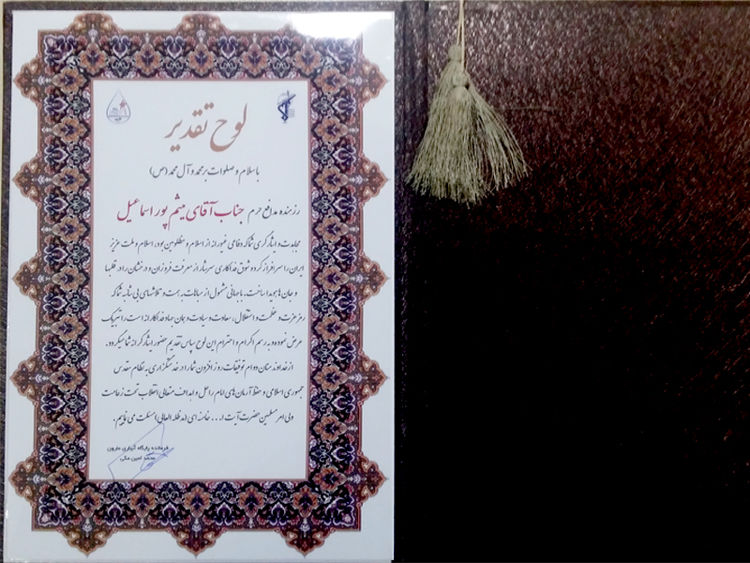 لوح تقدیر
با سلام و صلوات بر محمد و آل محمد (ص)
رزمنده مدافع حرم جناب آقای میثم پور اسماعیل
مجاهدت و ایثارگری شما که دفاعی غیورانه از اسلام و مظلومین بود، اسلام و ملت عزیز
ایران را سرافراز کرده شوق فداکاری سرشار از معرفت فروزان و درخشان را در قلبها
و جان ها هویدا ساخت. با جهانی مشمول از مباهات به همت و تلاشهای بی شائبه شما که
رمز عزت و عظمت و استقلال، سعادت و سیادت و همان جهاد فداکارانه است را تبریک
عرض نموده و به رسم اکرام و احترام این لوح سپاس تقدیم حضور ایثارگرانه شما میگردد.
از خداوند منان دوام توفیقات روز افزون شما را در خدمتگزاری به نظام مقدس
جمهوری اسلامی و حفظ آرمان های امام راحل و اهداف متعالی انقلاب تحت زعامت
ولی امر مسلمین حضرت آیت ا... خامنه ای (مدظله العالی) مسئلت می نماییم.
فرمانده پایگاه
محمد امین